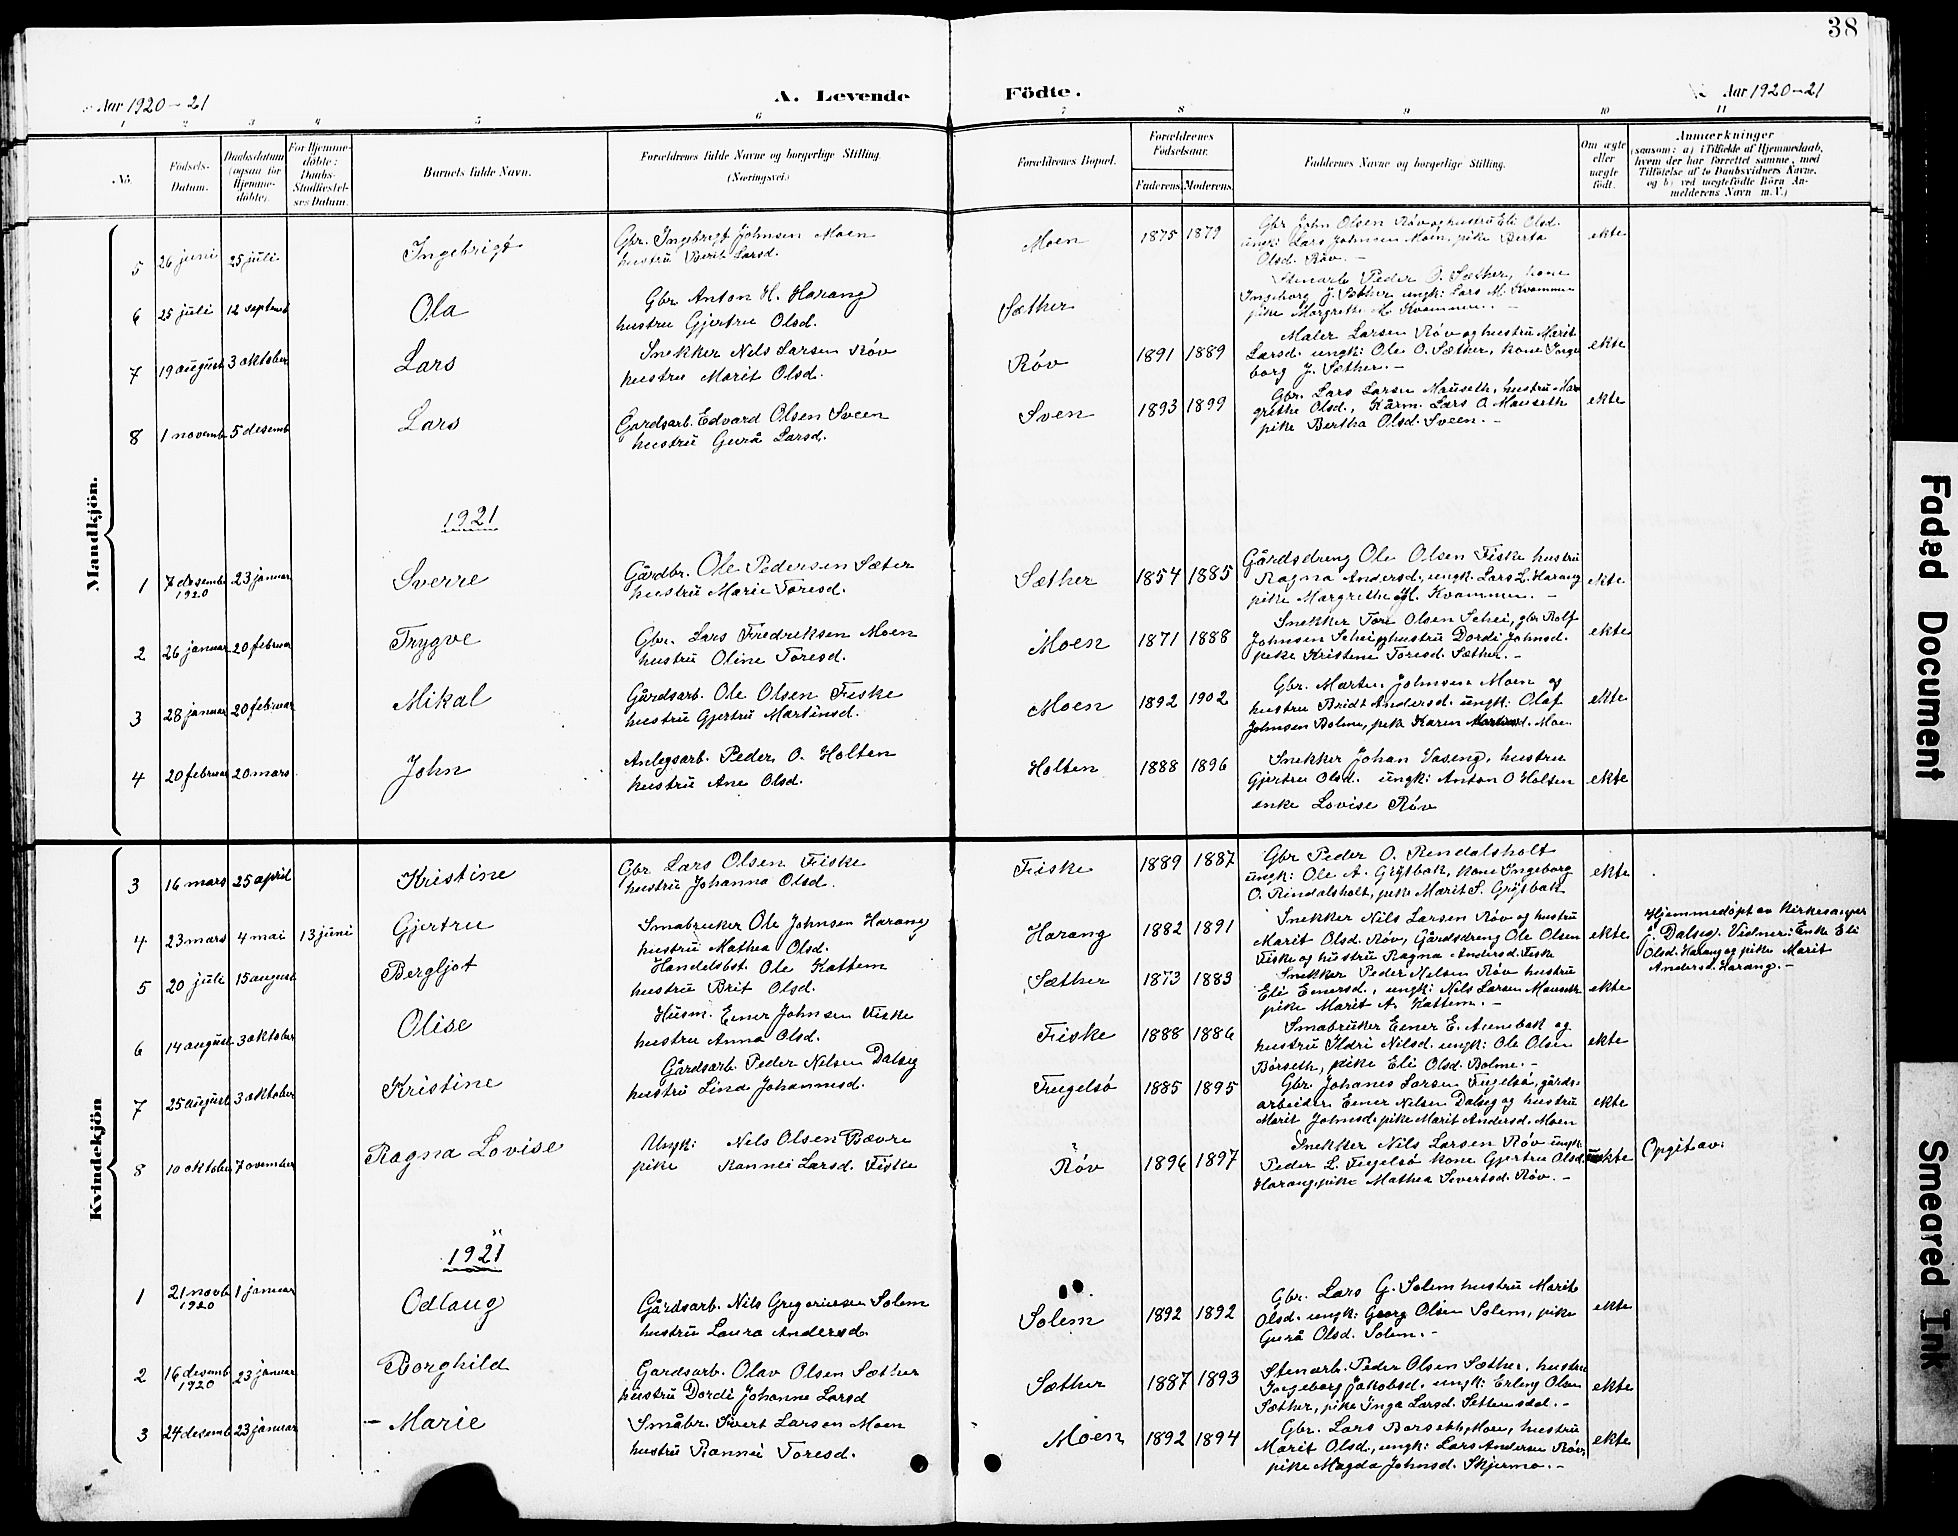 38
Aar 1920-21
A. Levende
Fødte.
Aar 1920-21
1 2 3 4 5 6 7 8 9 10 11
No.
Födsels-Datum.
Daabsdatum (ogsaa for Hjemmedöbte).
For Hjemmedöbte: Daabs-Stadfæstelses Datum.
Barnets fulde Navn.
Forældrenes fulde Navne og borgerlige Stilling. (Næringsvei.)
Forældrenes Bopæl.
Forældrenes Födselsaar.
Faderens. Moderens.
Faddernes Navne og borgerlige Stilling.
Om ægte eller uægte födt.
Anmærkninger
(saasom: a) i Tilfælde af Hjemmedaab, hvem der har forrettet samme, med Tilföielse af to Daabsvidners Navne, og b) ved uægtefödte Börn Anmelderens Navn m.V.)
Mandkjön.
5 26 juni 25 juli Ingebrigt Gbr. Ingebrigt Johnsen Moen
hustru Berit Larsd.
Moen 1875 1879 Gbr John Olsen Røv og hustru Eli Olsd.
ungk: Lars Johnsen Moen, pike Berta
Olsd. Røv. - ekte
6 25 juli 12 septemb Ola Gbr Anton H. Harang
hustru Gjertru Olsd.
Sæther Stenarb Peder O. Sæther, kone
Ingeborg J. Sæther ungk: Lars M. Kvammen
pike Margrethe M. Kvammen. -
7 19 august 3 oktober Lars Snekker Nils Larsen Røv
hustru Marit Olsd.
Røv 1891 1889 Maler Larsen Røv og hustru Marit
Larsd. ungk: Ole O. Sæther, kone Inge
borg J. Sæther. - ekte
8 1 novemb 5 desemb Lars Gardsarb. Edvard Olsen Sveen
hustru Gurå Larsd.
Sven 1893 1899 Gbr. Lars Larsen Mauseth, hustru Mar
grethe Olsd., Kårm. Lars O. Mauseth
pike Bertha Olsd. Sveen. - ekte
1921
1 7 desembr 1920 23 januar Sverre Gårdbr. Ole Pedersen Sæter
hustru Marie Toresd.
Sæther 1854 1885 Gårdsdreng Ole Olsen Fiske hustru
Ragna Andersd., ungk. Lars L. Harang
pike Margrethe M. Kvammen. - ekte
2 26 januar 20 februar Trygve Gbr. Lars Fredriksen Moen
hustru Oline Toresd.
Moen 1871 1888 Snekker Tore Olsen Schei, gbr Rolf
Johnsen Schei og hustru Dordi Johnsd.
pike Kristine Toresd. Sæther. - ekte
3 28 januar 20 februar Mikal Gårdsarb. Ole Olsen Fiske
hustru Gjertru Martinsd.
Moen 1892 1902 Gbr. Martin Johnsen Moen og
hustru Bridt Andersd. ungk: Olaf
Johnsen Bolme, pik Karen Martinsd. Moe. ekte
4 20 februar 20 mars John Anlegsarb. Peder O. Holten
hustru Ane Olsd.
Holten 1888 1896 Snekker Johan Vaseng, hustru
Gjertru Olsd. ungk: Anton O Holten
enke Lovise Røv ekte
Kvindekjön
3 16 mars 25 april Kristine Gbr Lars Olsen Fiske
hustru Johanna Olsd.
Fiske 1889 1887 Gbr Peder O. Rendalsholt
ungk: Ole A. Grytbak, kone Ingeborg
O. Rindalsholt, pike Marit S. Grytbak ekte
4 23 mars 4 mai 13 juni Gjertru Smabruker Ole Johnsen Harang
hustru Mathea Olsd.
Harang 1882 1891 Snekker Nils Larsen Røv og hustru
Marit Olsd. Røv, Gårdsdreng Ole Olsen
Fiske og hustru Ragna Andersd. Fiske ekte
Hjemmedøpt av kirkesanger
Dalseg. Vidner: Enke Eli
Olsd. Harang og pike Marit
Andersd. Harang. -
5 20 juli 15 august Bergljot Handelsbst. Ole Kattem
hustru Brit Olsd.
Sæther 1873 1883 Snekker Peder Nelsen Røv hustru
Eli Einersd., ungk: Nils Larsen Mauseth
pike Marit A. Kattem. - ekte
6 14 august 3 oktober Olise Husm. Einer Johnsen Fiske
hustru Anna Olsd.
Fiske 1888 1886 Smabruker Einer E. Aunebak og
hustru Ildri Nilsd. ungk: Ole Olsen
Børseth, pike Eli Olsd. Bolme. - ekte
7 25 august 3 oktober Kristine Gårdsarb. Peder Nelsen Dalseg
hustru Lina Johannesd.
Fugelsø 1885 1895 Gbr. Johanes Larsen Fugelsø, gårds-
arbeider Einer Nilsen Dalseg og hustru
Marit Johnsd. pike Marit Andersd. Moen ekte
8 10 oktober 7 november Ragna Lovise Ungk: Nels Olsen Bævre
pike Rannei Larsd. Fiske
Røv 1896 1897 Snekker Nils Larsen Røv ungk.
Peder L. Fugelsø kone Gjertru Olsd.
Harang, pike Mathea Sivertsd. Røv. - uekte
Opgit av:
1921
1 21 novb 1920 1 januar Odlaug Gårdsarb. Nils Gregoriusen Solem
hustru Laura Andersd.
Solem 1892 1892 Gbr. Lars G. Solem hustru Marit
Olsd. ungk: Georg Olsen Solem, pike
Gurå Olsd. Solem. - ekte
2 16 desemb 1920 23 januar Borghild Gardsarb. Olav Olsen Sæther
hustru Dordi Johanne Larsd
Sæther 1887 1893 Stenarb. Peder Olsen Sæther, hustru
Ingeborg Jakobsd. ungk: Erling Olsen
Sæther, pike Inga Larsd. Settemsdal. - ekte
3 24 desemb 23 januar Marie Småbr. Sivert Larsen Moen
hustru Rannei Toresd.
Moen 1892 1894 Gbr. Lars Borseth, Moen, hustru
Marit Olsd., ungk: Lars Andersen Røv,
pike Magda Johnsd. Skjermo. - ekte
Faded Document
Smeared Ink